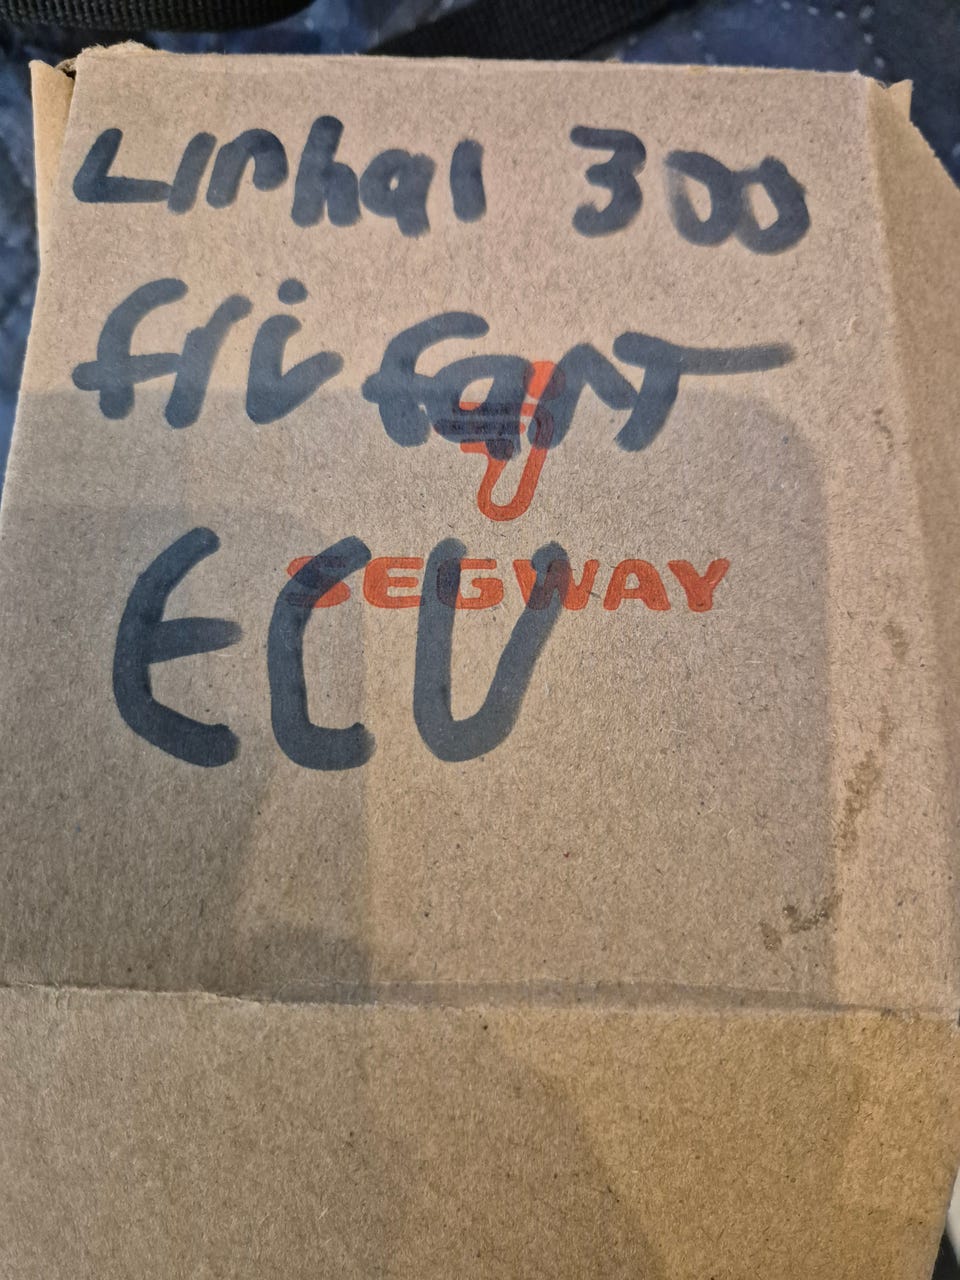 Linhai 300
fri fart
ECU
SEGWAY